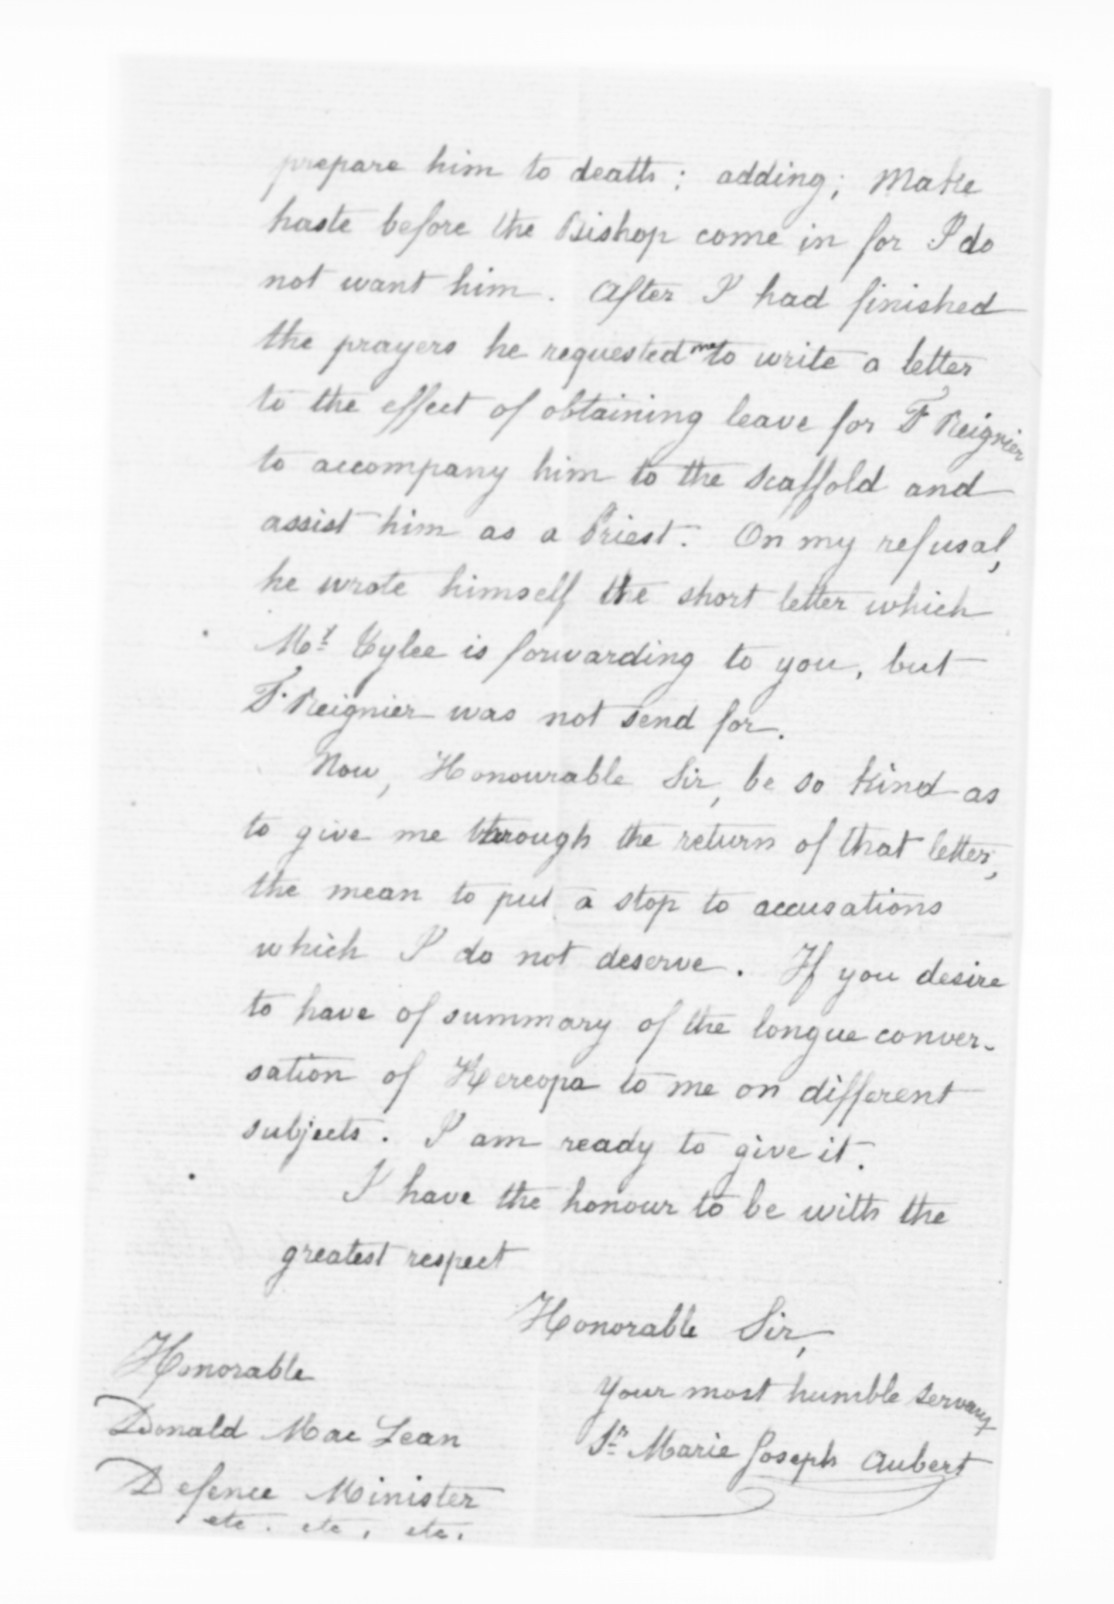 prepare him to death; adding; Make
haste before the Bishop come in for I do
not want him. After I had finished
the prayers he requested me to write a letter
to the effect of obtaining leave for F Reignier
to accompany him to the scaffold and
assist him as a Priest. On my refusal,
he wrote himself the short letter which
Mr. Tylee is forwarding to you, but
F. Reignier was not send for.
Now, Honourable Sir, be so kind as
to give me through the return of that letter,
the mean to put a stop to accusations
which I do not deserve. If you desire
to have of summary of the longue conver-
sation of Kereopa to me on different
subjects. I am ready to give it.
I have the honour to be with the
greatest respect
Honorable Sir,
Your most humble servant
Sr Marie Joseph Aubert
Honorable
Donald Mac Lean
Defence Minister
etc. etc, etc.